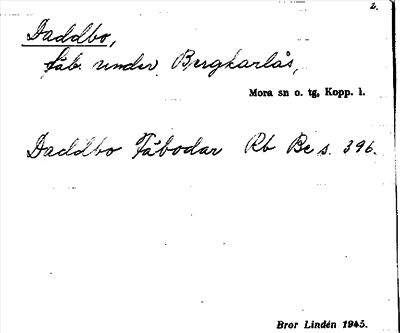 2.
Daddbo,
fäb. under Bergkarlås,
Mora sn o. tg, Kopp. l.
Daddbo Fäbodar Rb Be s. 396.
Bror Lindén 1945.